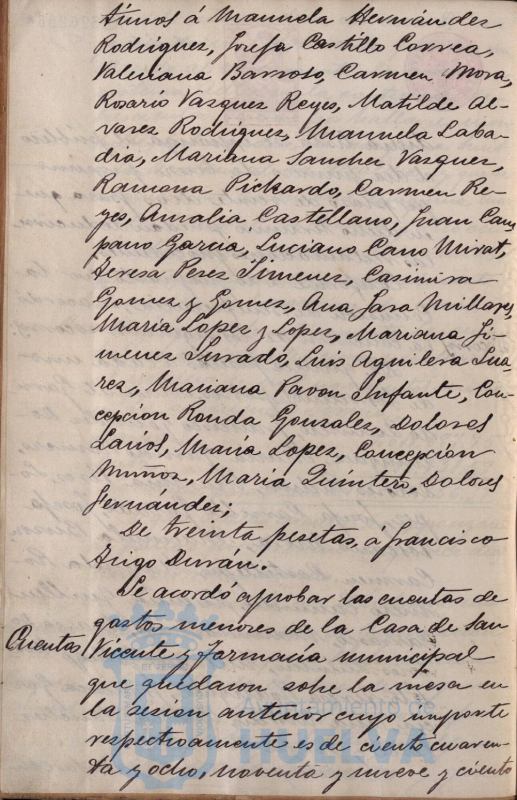 timos á Manuela Hernández
Rodríguez, Josefa Castillo Correa,
Valeriana Barroso, Carmen Mora,
Rosario Vazquez Reyes, Matilde Al-
varez Rodriguez, Manuela Laba-
dia, Mariana Sanchez Vazquez,
Ramona Pickardo, Carmen Re-
yes, Amalia Castellano, Juan Cam
pano García, Luciano Cano Mirat,
Teresa Perez Jimenez, Casimira
Gomez y Gomez, Ana Jara Millares,
María Lopez y Lopez, Mariana Ji-
menez Jurado, Luis Aguilera Sua-
rez, Mariana Pavon Infante, Con-
cepcion Ronda Gonzalez, Dolores
Larios, María Lopez, Concepción
Muñoz, Maria Quintero, Dolores
Fernández;
De treinta pesetas, á Francisco
Trigo Durán.
Se acordó aprobar las cuentas de
gastos menores de la Casa de San
Cuentas Vicente y Farmacia municipal
que quedaron sobre la mesa en
la sesion anterior cuyo importe
respectivamente es de ciento cuaren-
ta y ocho, noventa y nueve y ciento
Ayuntamiento de
HUELVA